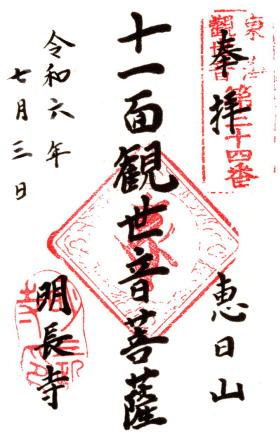 奉拝
東海
観音
第三十四番
恵日山
十一面観世音菩薩
令和六年
七月三日
明長寺